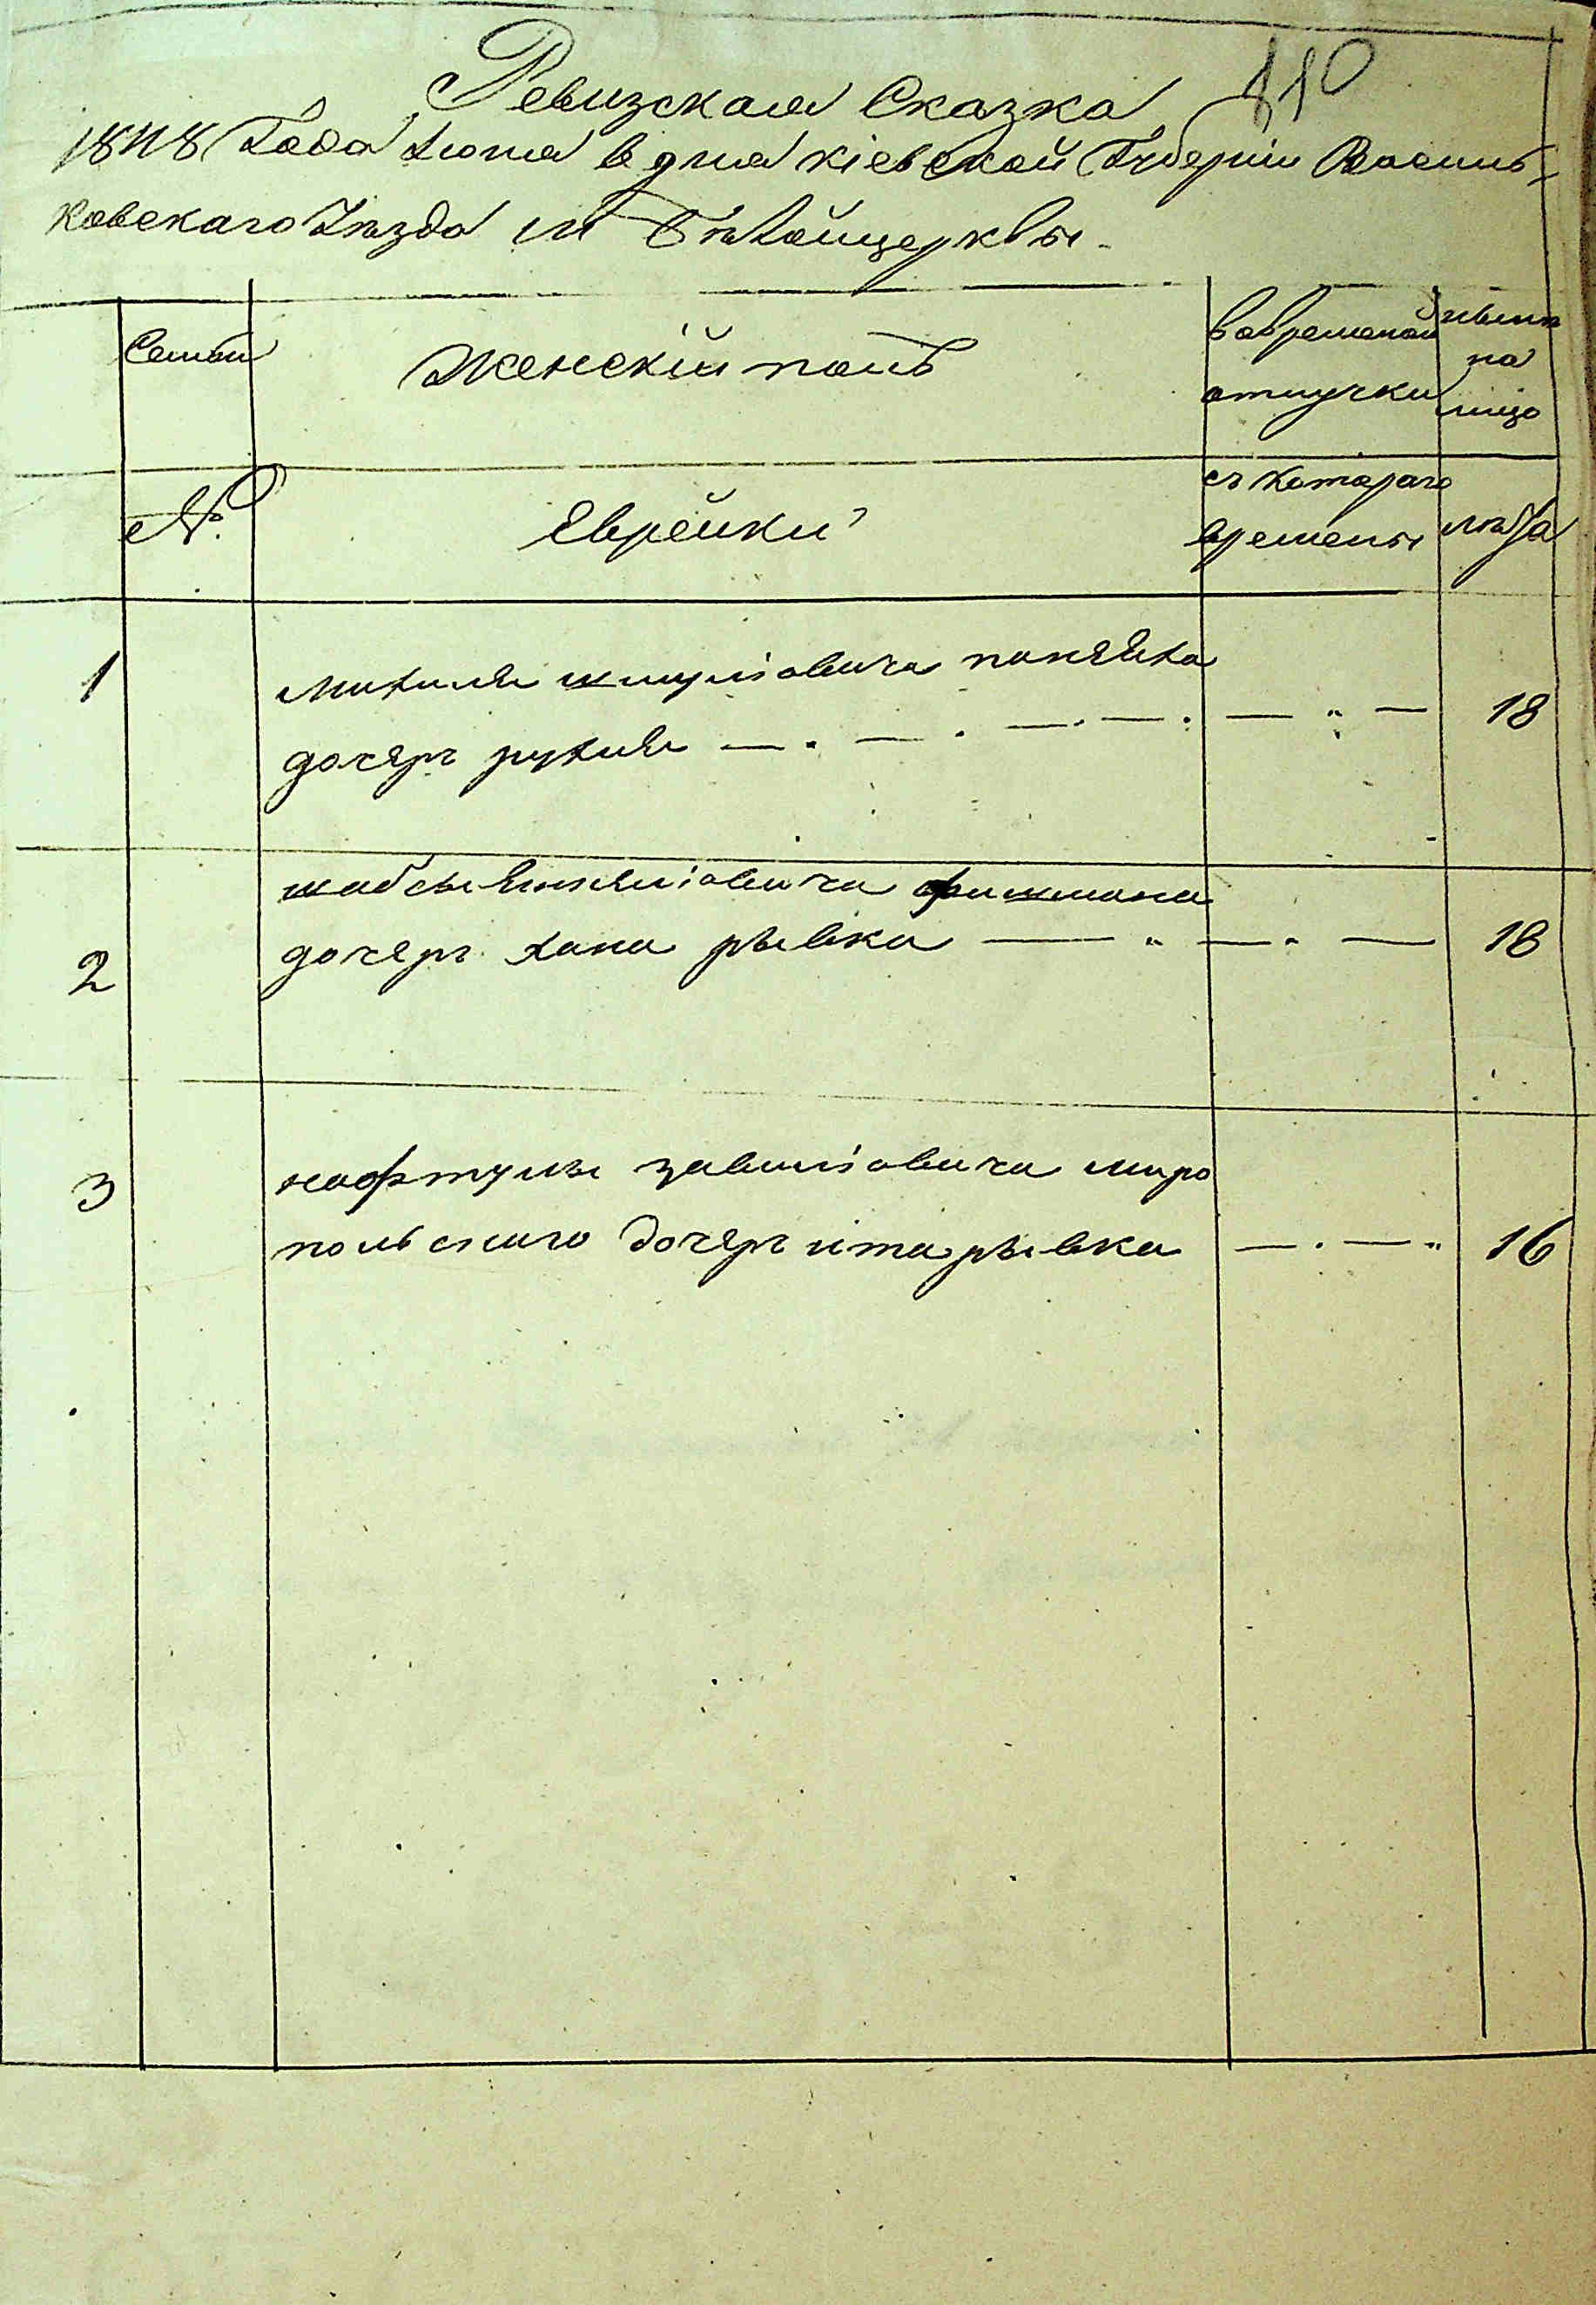 Ревизская Сказка 110
1848 Года Июня в дня кіевской Губерніи Василь-
ковскаго Уѣзда м Бѣлойцерквы.
Семьи
Женскій полъ
вовременой
отлучки
нынѣ
на
лицо
№
Еврейки
съ котораго
времены
лѣта
1
шмуліовича
дочерь рухля — . — . — . — . — „ — 18
шабсы фишмана
2
дочерь хана рывка — „ — . — 18
3
нафтулы завліовича миро
польского дочерь ита рывка — . — „ 16